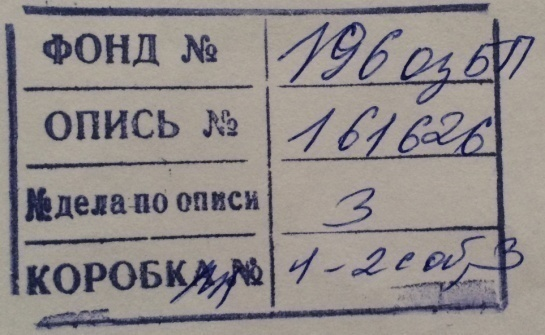 ФОНД № 196 оз БП
ОПИСЬ № 161626
№ дела по описи 3
КОРОБКА № 1-2